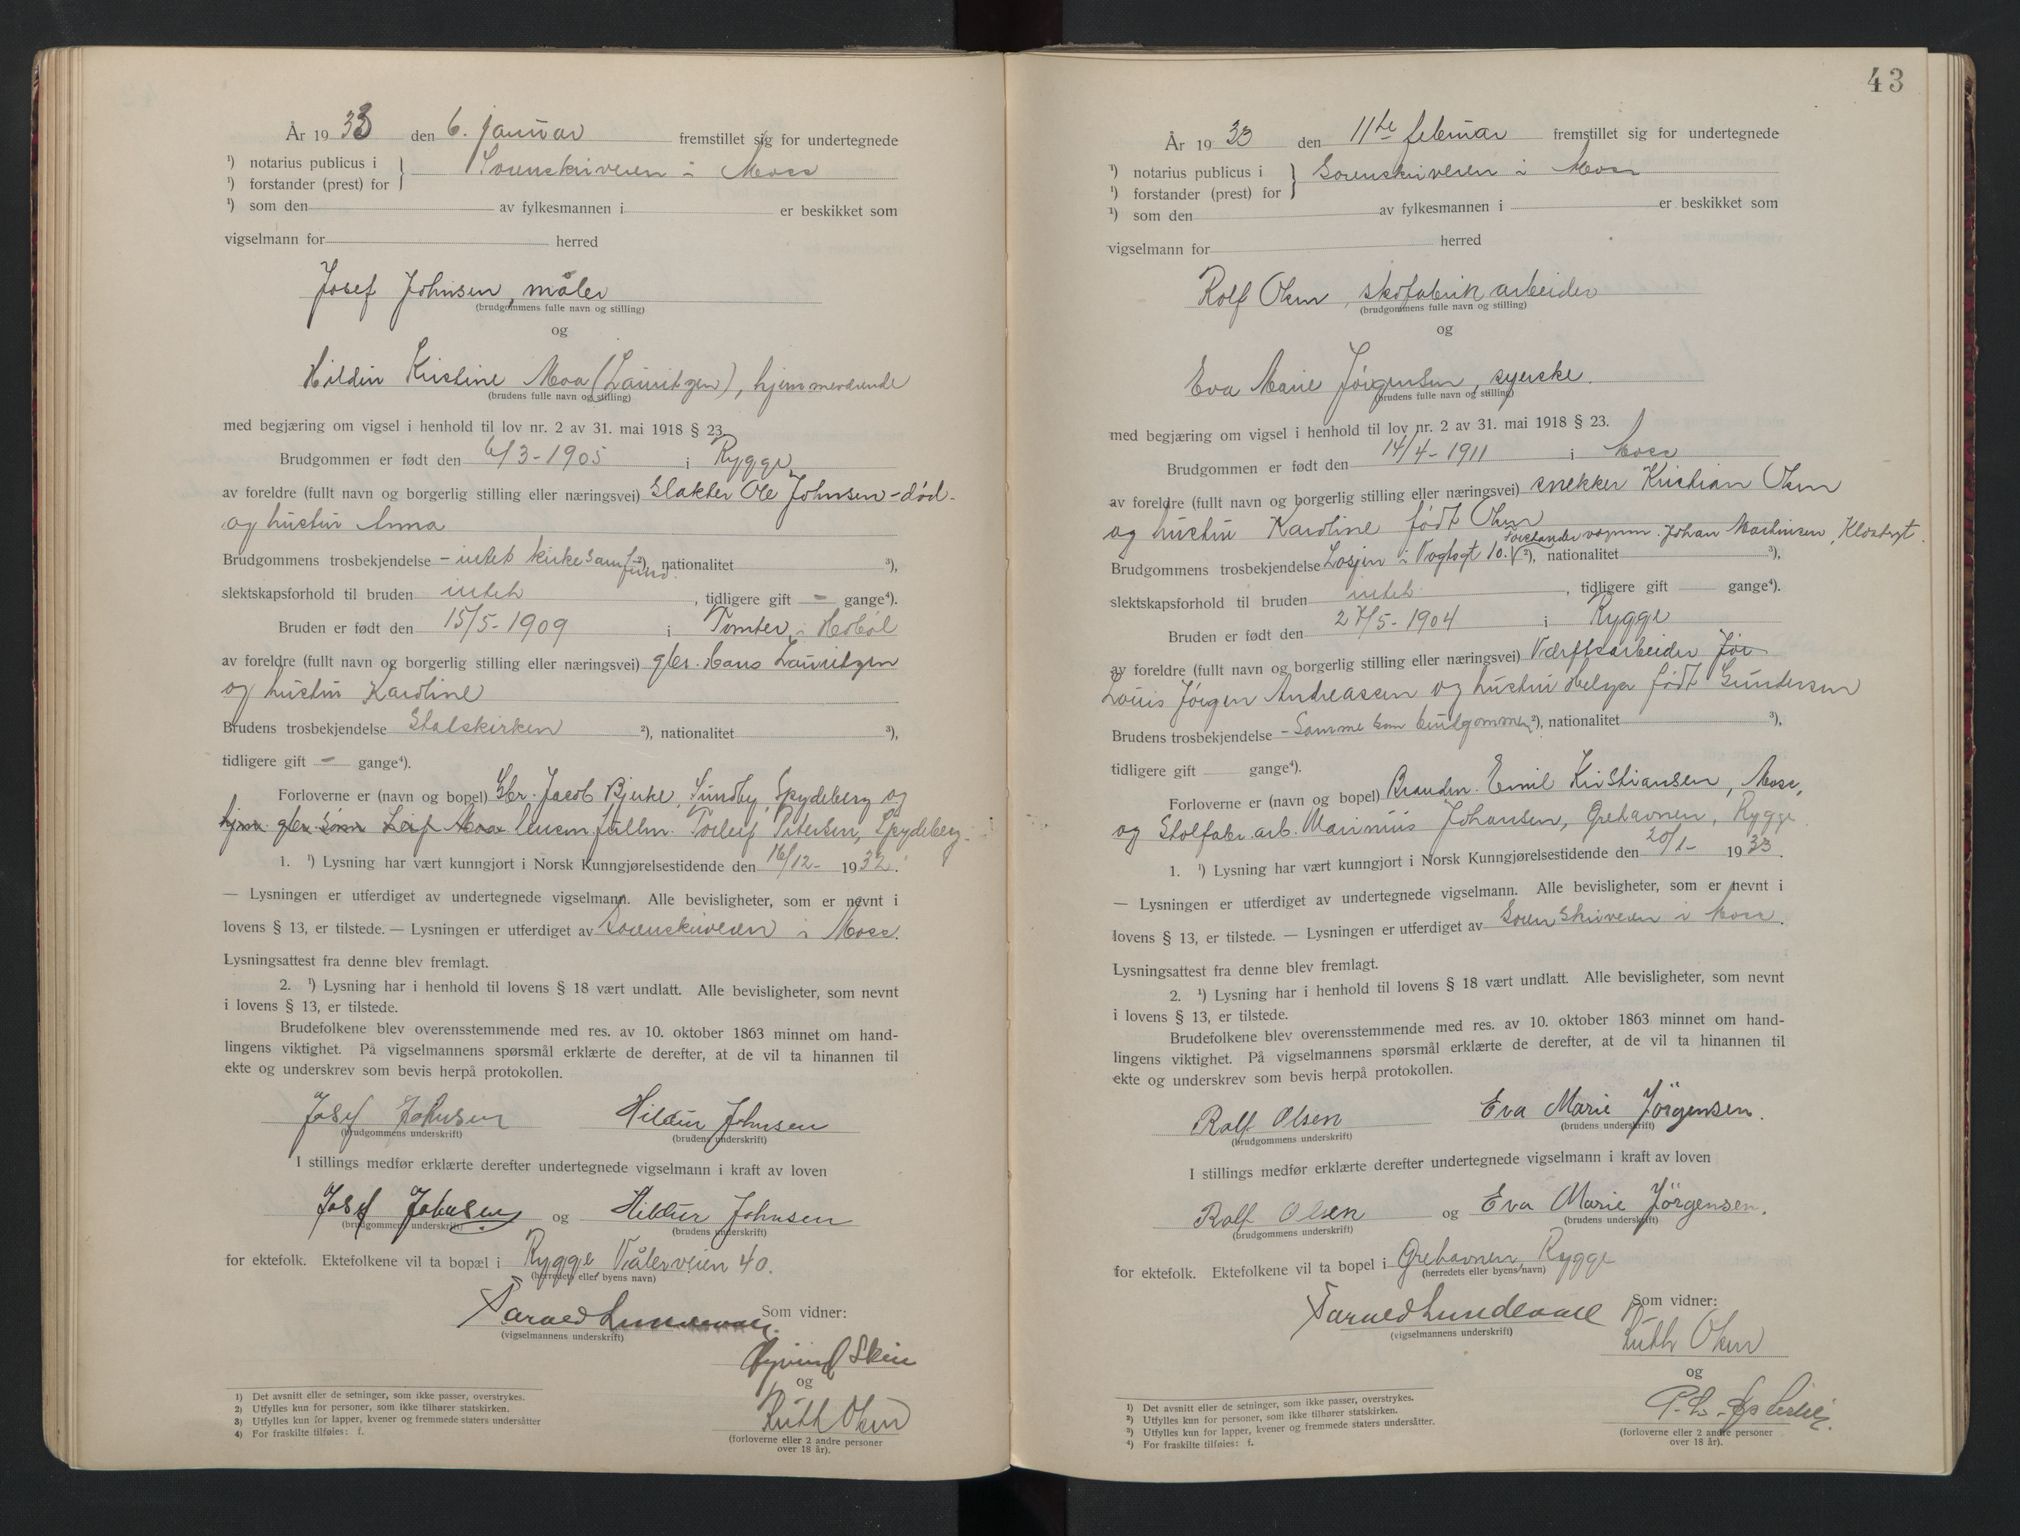 År 1933 den 6. januar fremstillet sig for undertegnede
¹) notarius publicus i } Sorenskriveren i Moss
¹) forstander (prest) for
¹) som den av fylkesmannen i er beskikket som
vigselmann for herred
Josef Johnsen, maler
(brudgommens fulle navn og stilling)
og
Hildur Kristine Moa (Lauritzen), hjemmeværende
(brudens fulle navn og stilling)
med begjæring om vigsel i henhold til lov nr. 2 av 31. mai 1918 § 23.
Brudgommen er født den 6/3-1905 i Rygge
av foreldre (fullt navn og borgerlig stilling eller næringsvei) Slakter Ole Johnsen - død -
og hustru Anna
Brudgommens trosbekjendelse - intet kirkesamfund. ²), nationalitet ³),
slektskapsforhold til bruden intet, tidligere gift - gange⁴).
Bruden er født den 15/5-1909 i Tomter i Hobøl
av foreldre (fullt navn og borgerlig stilling eller næringsvei) gbr. Hans Lauritzen
og hustru Karoline
Brudens trosbekjendelse Statskirken ²), nationalitet ³),
tidligere gift - gange⁴).
Forloverne er (navn og bopel) Gbr. Jacob Bjerke, Sundby, Spydeberg og
lensm.fullm. Torleif Petersen, Spydeberg.
1. ¹) Lysning har vært kunngjort i Norsk Kunngjørelsestidende den 16/12- 1932.
— Lysningen er utferdiget av undertegnede vigselmann. Alle bevisligheter, som er nevnt i
lovens § 13, er tilstede. — Lysningen er utferdiget av Sorenskriveren i Moss.
Lysningsattest fra denne blev fremlagt.
2. ¹) Lysning har i henhold til lovens § 18 vært undlatt. Alle bevisligheter, som nevnt
i lovens § 13, er tilstede.
Brudefolkene blev overensstemmende med res. av 10. oktober 1863 minnet om hand-
lingens viktighet. På vigselmannens spørsmål erklærte de derefter, at de vil ta hinannen til
ekte og underskrev som bevis herpå protokollen.
Josef Johnsen Hildur Johnsen
(brudgommens underskrift) (brudens underskrift)
I stillings medfør erklærte derefter undertegnede vigselmann i kraft av loven
Josef Johnsen og Hildur Johnsen
(brudgommens underskrift) (brudens underskrift)
for ektefolk. Ektefolkene vil ta bopæl i Rygge Vålerveien 40.
(herredets eller byens navn)
Som vidner:
(vigselmannens underskrift)
Øyvind Skou
og
Ruth Olsen
(forloverne eller 2 andre personer
over 18 år).
1) Det avsnitt eller de setninger, som ikke passer, overstrykes.
2) Utfylles kun for personer, som ikke tilhører statskirken.
3) Utfylles kun for lapper, kvener og fremmede staters undersåtter
4) For fraskilte tilføies: f.
43
År 1933 den 11te februar fremstillet sig for undertegnede
¹) notarius publicus i } Sorenskriveren i Moss
¹) forstander (prest) for
¹) som den av fylkesmannen i er beskikket som
vigselmann for herred
Rolf Olsen, skofabrikarbeider
(brudgommens fulle navn og stilling)
og
Eva Marie Jørgensen, syerske.
(brudens fulle navn og stilling)
med begjæring om vigsel i henhold til lov nr. 2 av 31. mai 1918 § 23.
Brudgommen er født den 14/4-1911 i Moss
av foreldre (fullt navn og borgerlig stilling eller næringsvei) snekker Kristian Olsen
og hustru Karoline født Olsen
forstander vognm. Johan Martinsen, Klostergt.
Brudgommens trosbekjendelse Losjen i Vogtsgt 10. ²), nationalitet ³),
slektskapsforhold til bruden intet, tidligere gift gange⁴).
Bruden er født den 27/5-1904 i Rygge
av foreldre (fullt navn og borgerlig stilling eller næringsvei) Værftsarbeider Jør
Louis Jørgen Andreassen og hustru Helga født Gundersen
Brudens trosbekjendelse - Samme som brudgommen ²), nationalitet ³),
tidligere gift gange⁴).
Forloverne er (navn og bopel) Brandm. Emil Kristiansen, Moss,
og Stolfabr.arb. Marinius Johansen, Grehavnen, Rygge
1. ¹) Lysning har vært kunngjort i Norsk Kunngjørelsestidende den 20/1- 1933.
— Lysningen er utferdiget av undertegnede vigselmann. Alle bevisligheter, som er nevnt i
lovens § 13, er tilstede. — Lysningen er utferdiget av Sorenskriveren i Moss.
Lysningsattest fra denne blev fremlagt.
2. ¹) Lysning har i henhold til lovens § 18 vært undlatt. Alle bevisligheter, som nevnt
i lovens § 13, er tilstede.
Brudefolkene blev overensstemmende med res. av 10. oktober 1863 minnet om hand-
lingens viktighet. På vigselmannens spørsmål erklærte de derefter, at de vil ta hinannen til
ekte og underskrev som bevis herpå protokollen.
Rolf Olsen Eva Marie Jörgensen.
(brudgommens underskrift) (brudens underskrift)
I stillings medfør erklærte derefter undertegnede vigselmann i kraft av loven
Rolf Olsen og Eva Marie Jörgensen.
(brudgommens underskrift) (brudens underskrift)
for ektefolk. Ektefolkene vil ta bopel i Grehavnen, Rygge
(herredets eller byens navn)
Som vidner:
(vigselmannens underskrift)
Ruth Olsen
og
(forloverne eller 2 andre personer
over 18 år).
1) Det avsnitt eller de setninger, som ikke passer, overstrykes.
2) Utfylles kun for personer, som ikke tilhører statskirken.
3) Utfylles kun for lapper, kvener og fremmede staters undersåtter.
4) For fraskilte tilføies: f.